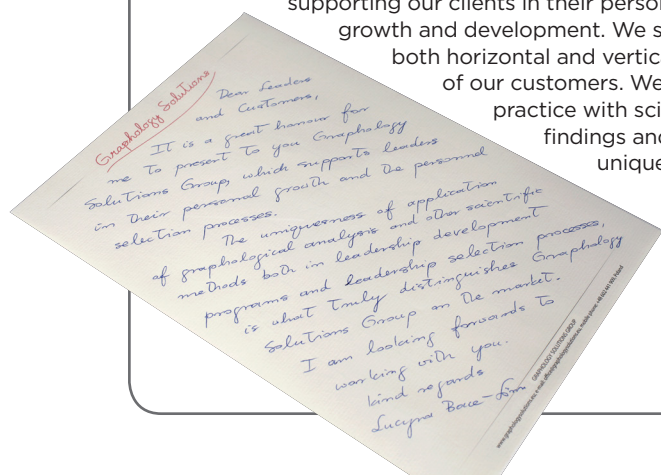 supporting our clients in their person
growth and development. We s
both horizontal and vertic
of our customers. We
practice with sci
findings and
unique
Graphology Solutions
Dear Leaders
and Customers,
It is a great honour for
me to present to you Graphology
Solutions Group, which supports leaders
in their personal growth and the personnel
selection processes.
The uniqueness of application
of graphological analysis and other scientific
methods both in leadership development
programs and leadership selection processes,
is what truly distinguishes Graphology
Solutions Group on the market.
I am looking forwards to
working with you.
kind regards
Lucyna
GRAPHOLOGY SOLUTIONS GROUP